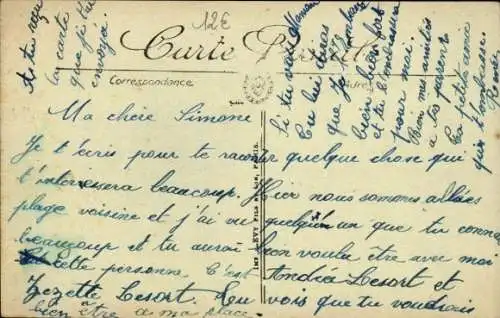 12€
Carte Postale
Correspondance
As tu reçu
la carte
que j'ai
envoyé
Ma chère Simone
Je t'écris pour te raconter quelque chose qui
t'interessera beaucoup. Hier nous sommes allées
plage voisine et j'ai vu quelqu'un que tu connais
beaucoup et tu aurais bien voulu être avec moi
cette personne. C'est Andréa Lesort et
Zézette Lesort. Tu vois que tu voudrais
bien être à ma place.
Si tu vois
tu lui diras
que je
bien bien fort
et tu l'embrassera
pour moi.
Bon amitiés
à tes parents
Ta petite amie
qui t'embrasse.
LEVY FILS
PARIS